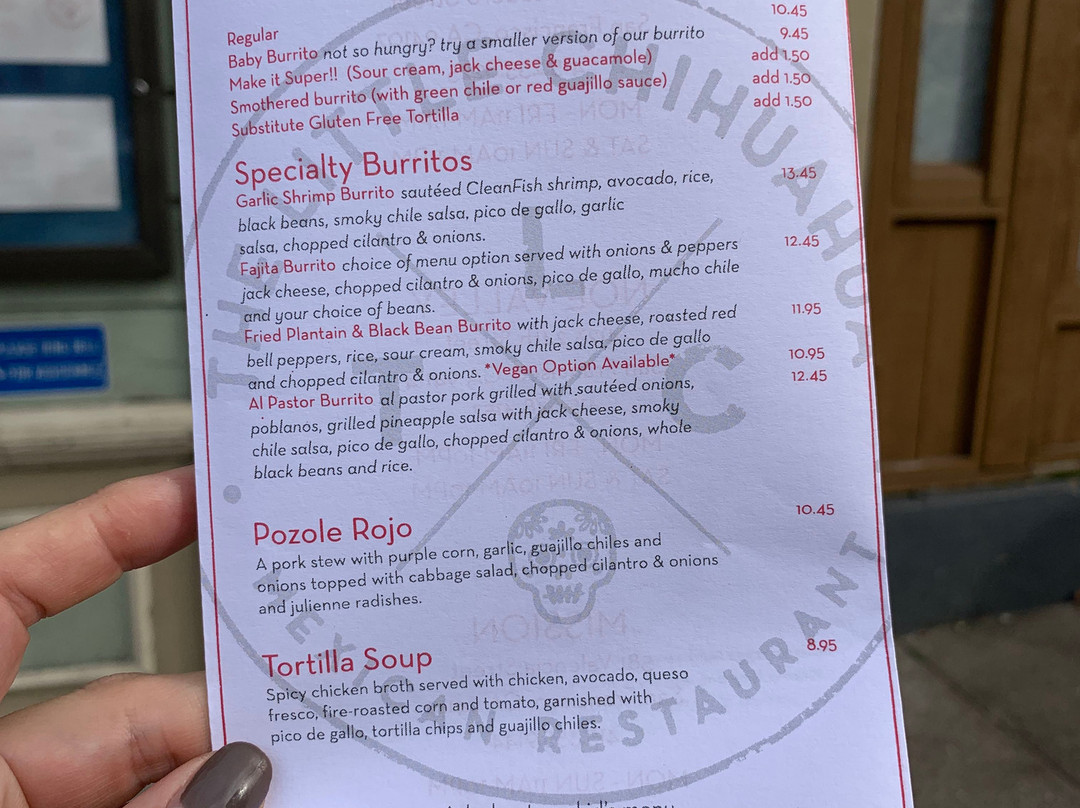 Regular 10.45
Baby Burrito not so hungry? try a smaller version of our burrito 9.45
Make it Super!! (Sour cream, jack cheese & guacamole) add 1.50
Smothered burrito (with green chile or red guajillo sauce) add 1.50
Substitute Gluten Free Tortilla add 1.50
Specialty Burritos
Garlic Shrimp Burrito sautéed CleanFish shrimp, avocado, rice, 13.45
black beans, smoky chile salsa, pico de gallo, garlic
salsa, chopped cilantro & onions.
Fajita Burrito choice of menu option served with onions & peppers 12.45
jack cheese, chopped cilantro & onions, pico de gallo, mucho chile
and your choice of beans.
Fried Plantain & Black Bean Burrito with jack cheese, roasted red 11.95
bell peppers, rice, sour cream, smoky chile salsa, pico de gallo
and chopped cilantro & onions. *Vegan Option Available* 10.95
Al Pastor Burrito al pastor pork grilled with sautéed onions, 12.45
poblanos, grilled pineapple salsa with jack cheese, smoky
chile salsa, pico de gallo, chopped cilantro & onions, whole
black beans and rice.
Pozole Rojo 10.45
A pork stew with purple corn, garlic, guajillo chiles and
onions topped with cabbage salad, chopped cilantro & onions
and julienne radishes.
Tortilla Soup 8.95
Spicy chicken broth served with chicken, avocado, queso
fresco, fire-roasted corn and tomato, garnished with
pico de gallo, tortilla chips and guajillo chiles.
THE LITTLE CHIHUAHUA
L
T C
MEXICAN RESTAURANT